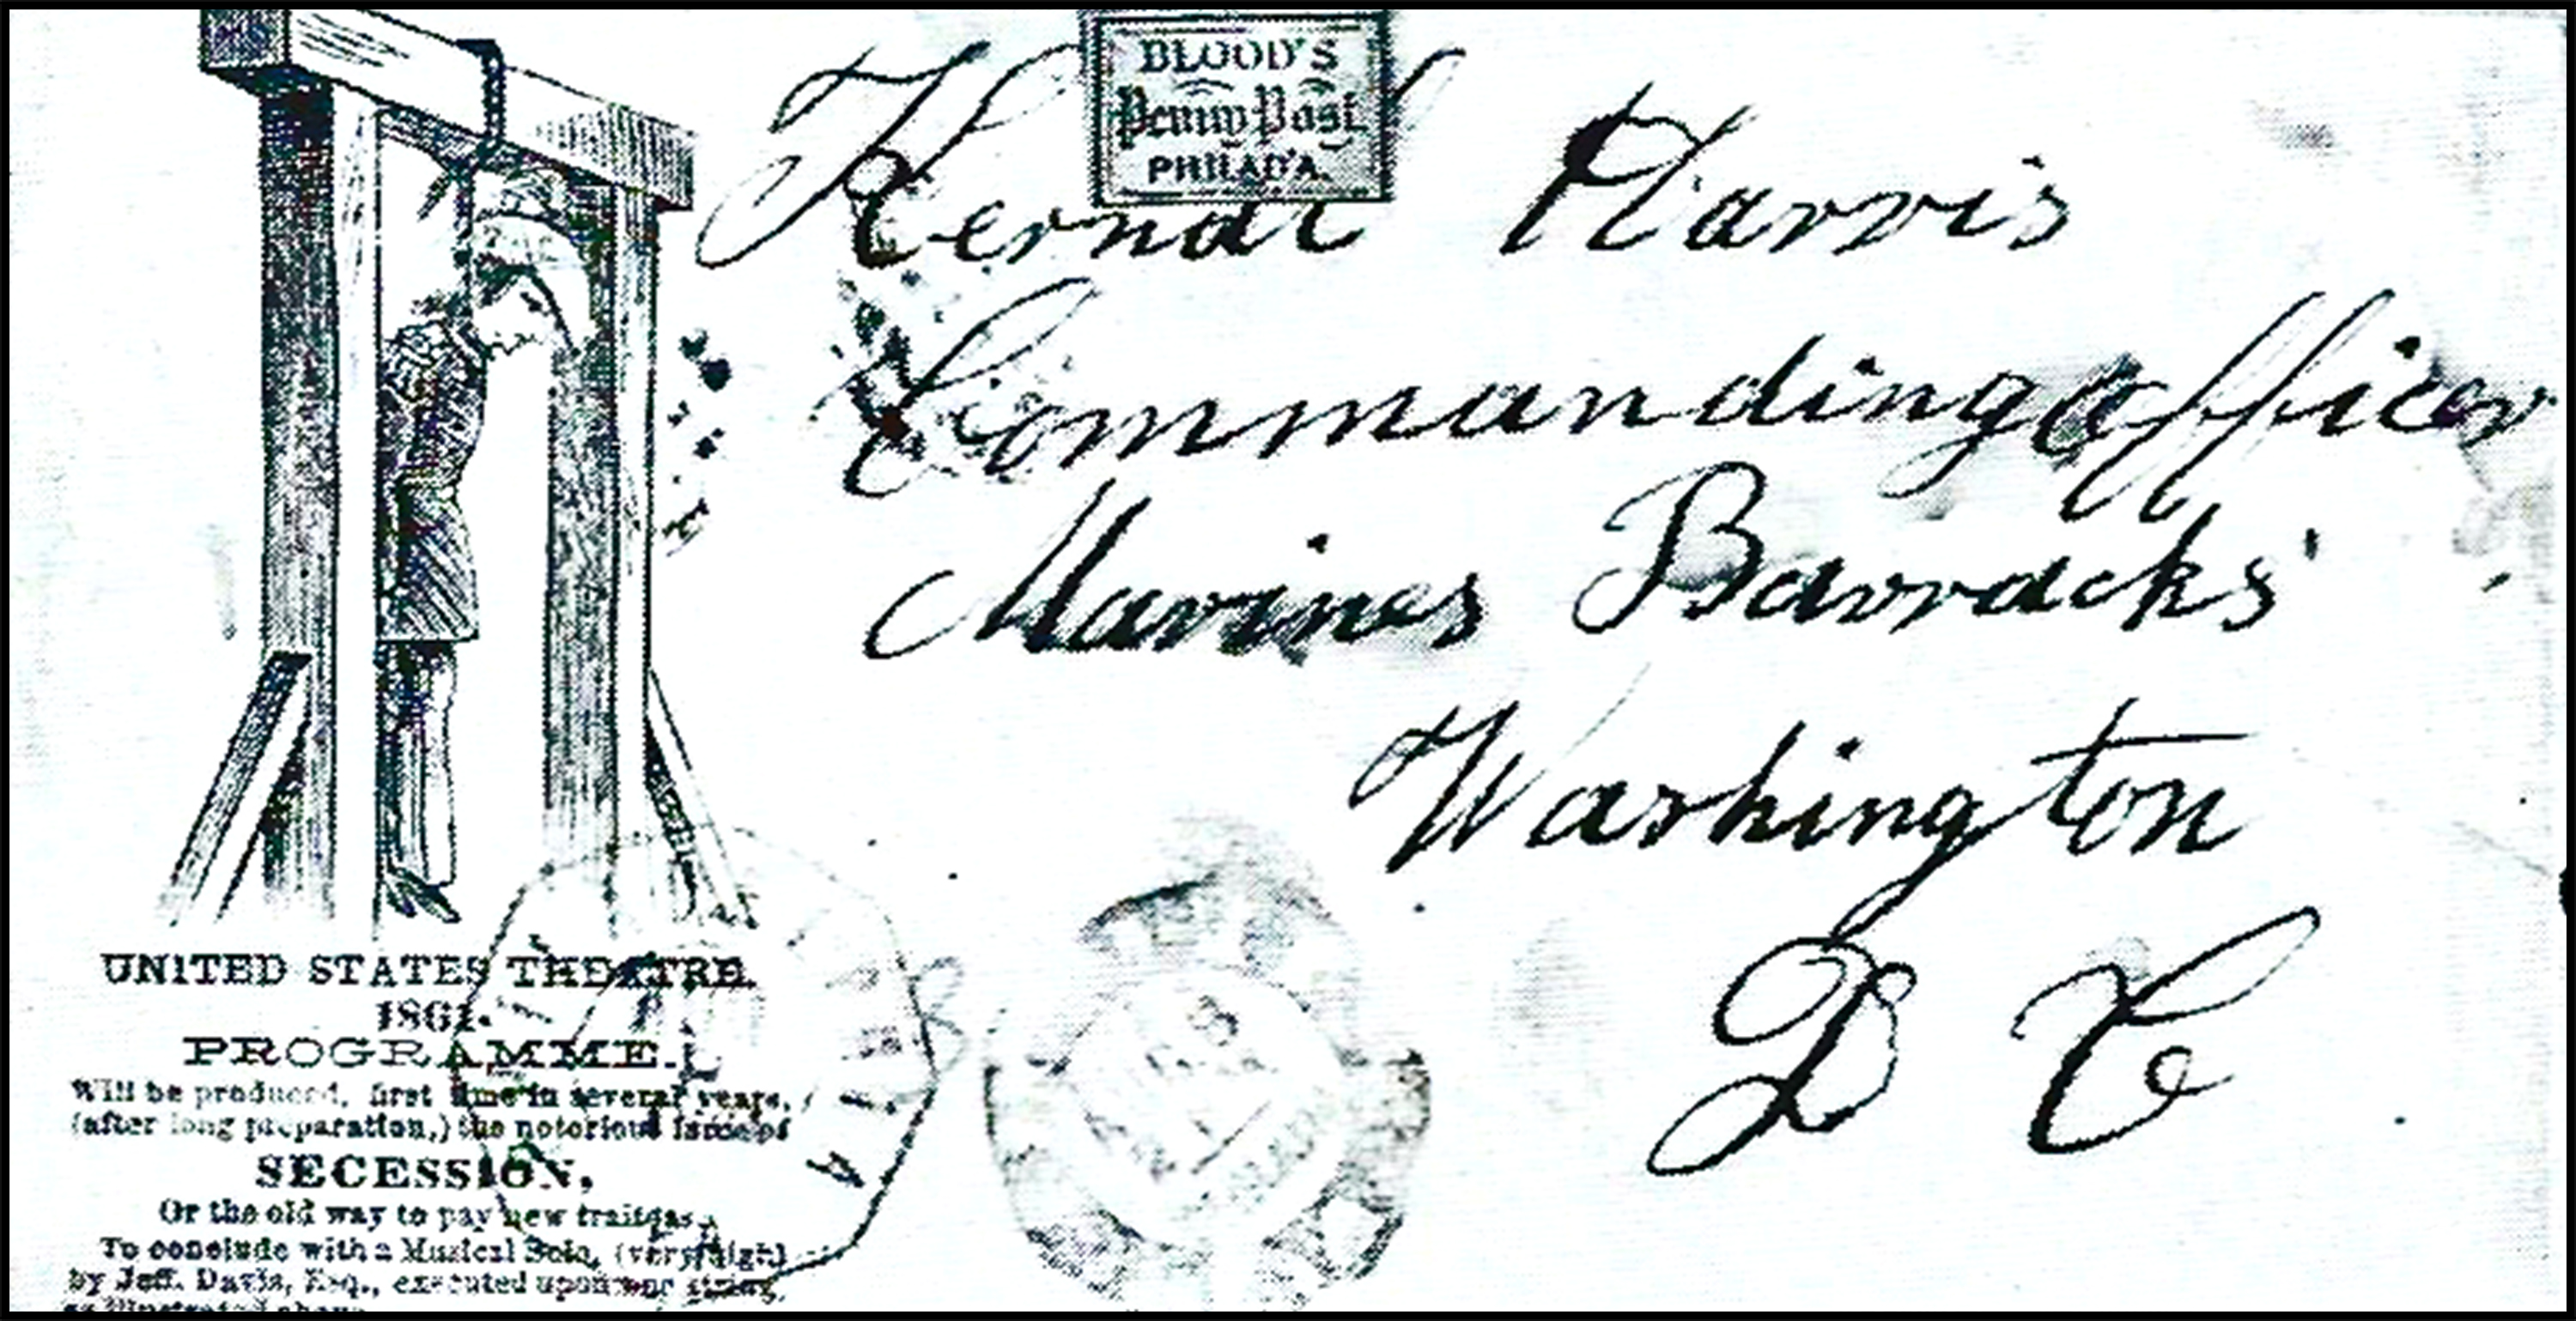 BLOOD'S
Penny Post
PHILAD'A.
Harris
Commanding Officer
Marines Barracks
Washington
D C
UNITED STATES THEATRE.
1861.
PROGRAMME.
Will be produced, first time in several years,
(after long preparation,) the notorious farce of
SECESSION,
Or the old way to pay new
To conclude with a Musical Solo, (very high)
by Jeff. Davis, Esq., executed upon one string,
as illustrated above